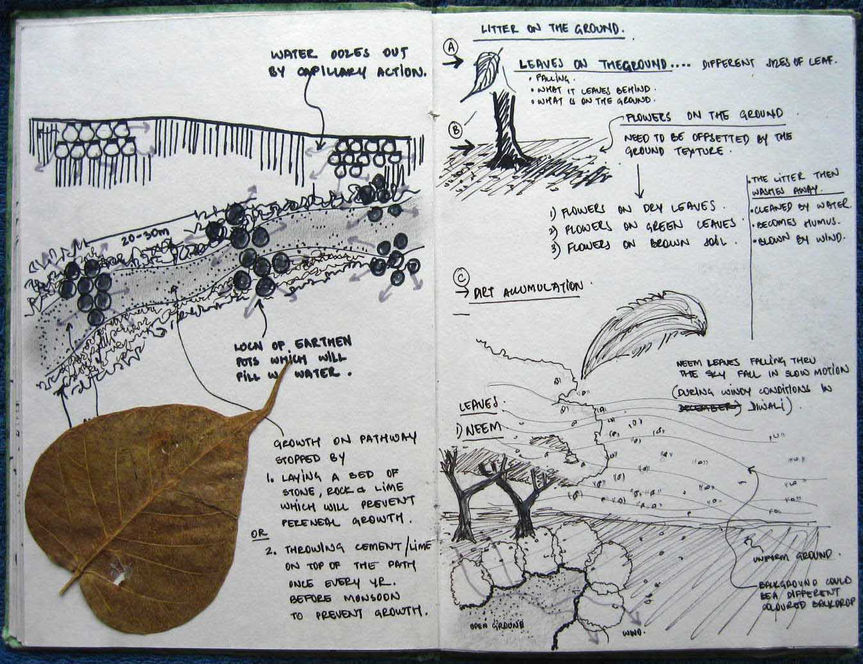 WATER OOZES OUT
BY CAPILLARY ACTION.
20-30m
LOCN OF EARTHEN
POTS WHICH WILL
FILL W WATER.
GROWTH ON PATHWAY
STOPPED BY
1. LAYING A BED OF
STONE, ROCK & LIME
WHICH WILL PREVENT
PERENEAL GROWTH.
OR
2. THROWING CEMENT/LIME
ON TOP OF THE PATH
ONCE EVERY YR.
BEFORE MONSOON
TO PREVENT GROWTH.
LITTER ON THE GROUND.
A
LEAVES ON THE GROUND.... DIFFERENT SIZES OF LEAF.
• FALLING.
• WHAT IT LEAVES BEHIND.
• WHAT IS ON THE GROUND.
B
FLOWERS ON THE GROUND
NEED TO BE OFFSETTED BY THE
GROUND TEXTURE.
1) FLOWERS ON DRY LEAVES.
2) FLOWERS ON GREEN LEAVES.
3) FLOWERS ON BROWN SOIL.
• THE LITTER THEN
WASHES AWAY.
• CLEANED BY WATER.
• BECOMES HUMUS.
• BLOWN BY WIND.
C
DIRT ACCUMULATION.
NEEM LEAVES FALLING THRU
THE SKY FALL IN SLOW MOTION
(DURING WINDY CONDITIONS IN
DECEMBER) DIWALI).
LEAVES.
1) NEEM
UNIFORM GROUND.
BACKGROUND COULD
BE A DIFFERENT
COLOURED BACKDROP
OPEN GROUND
WIND.